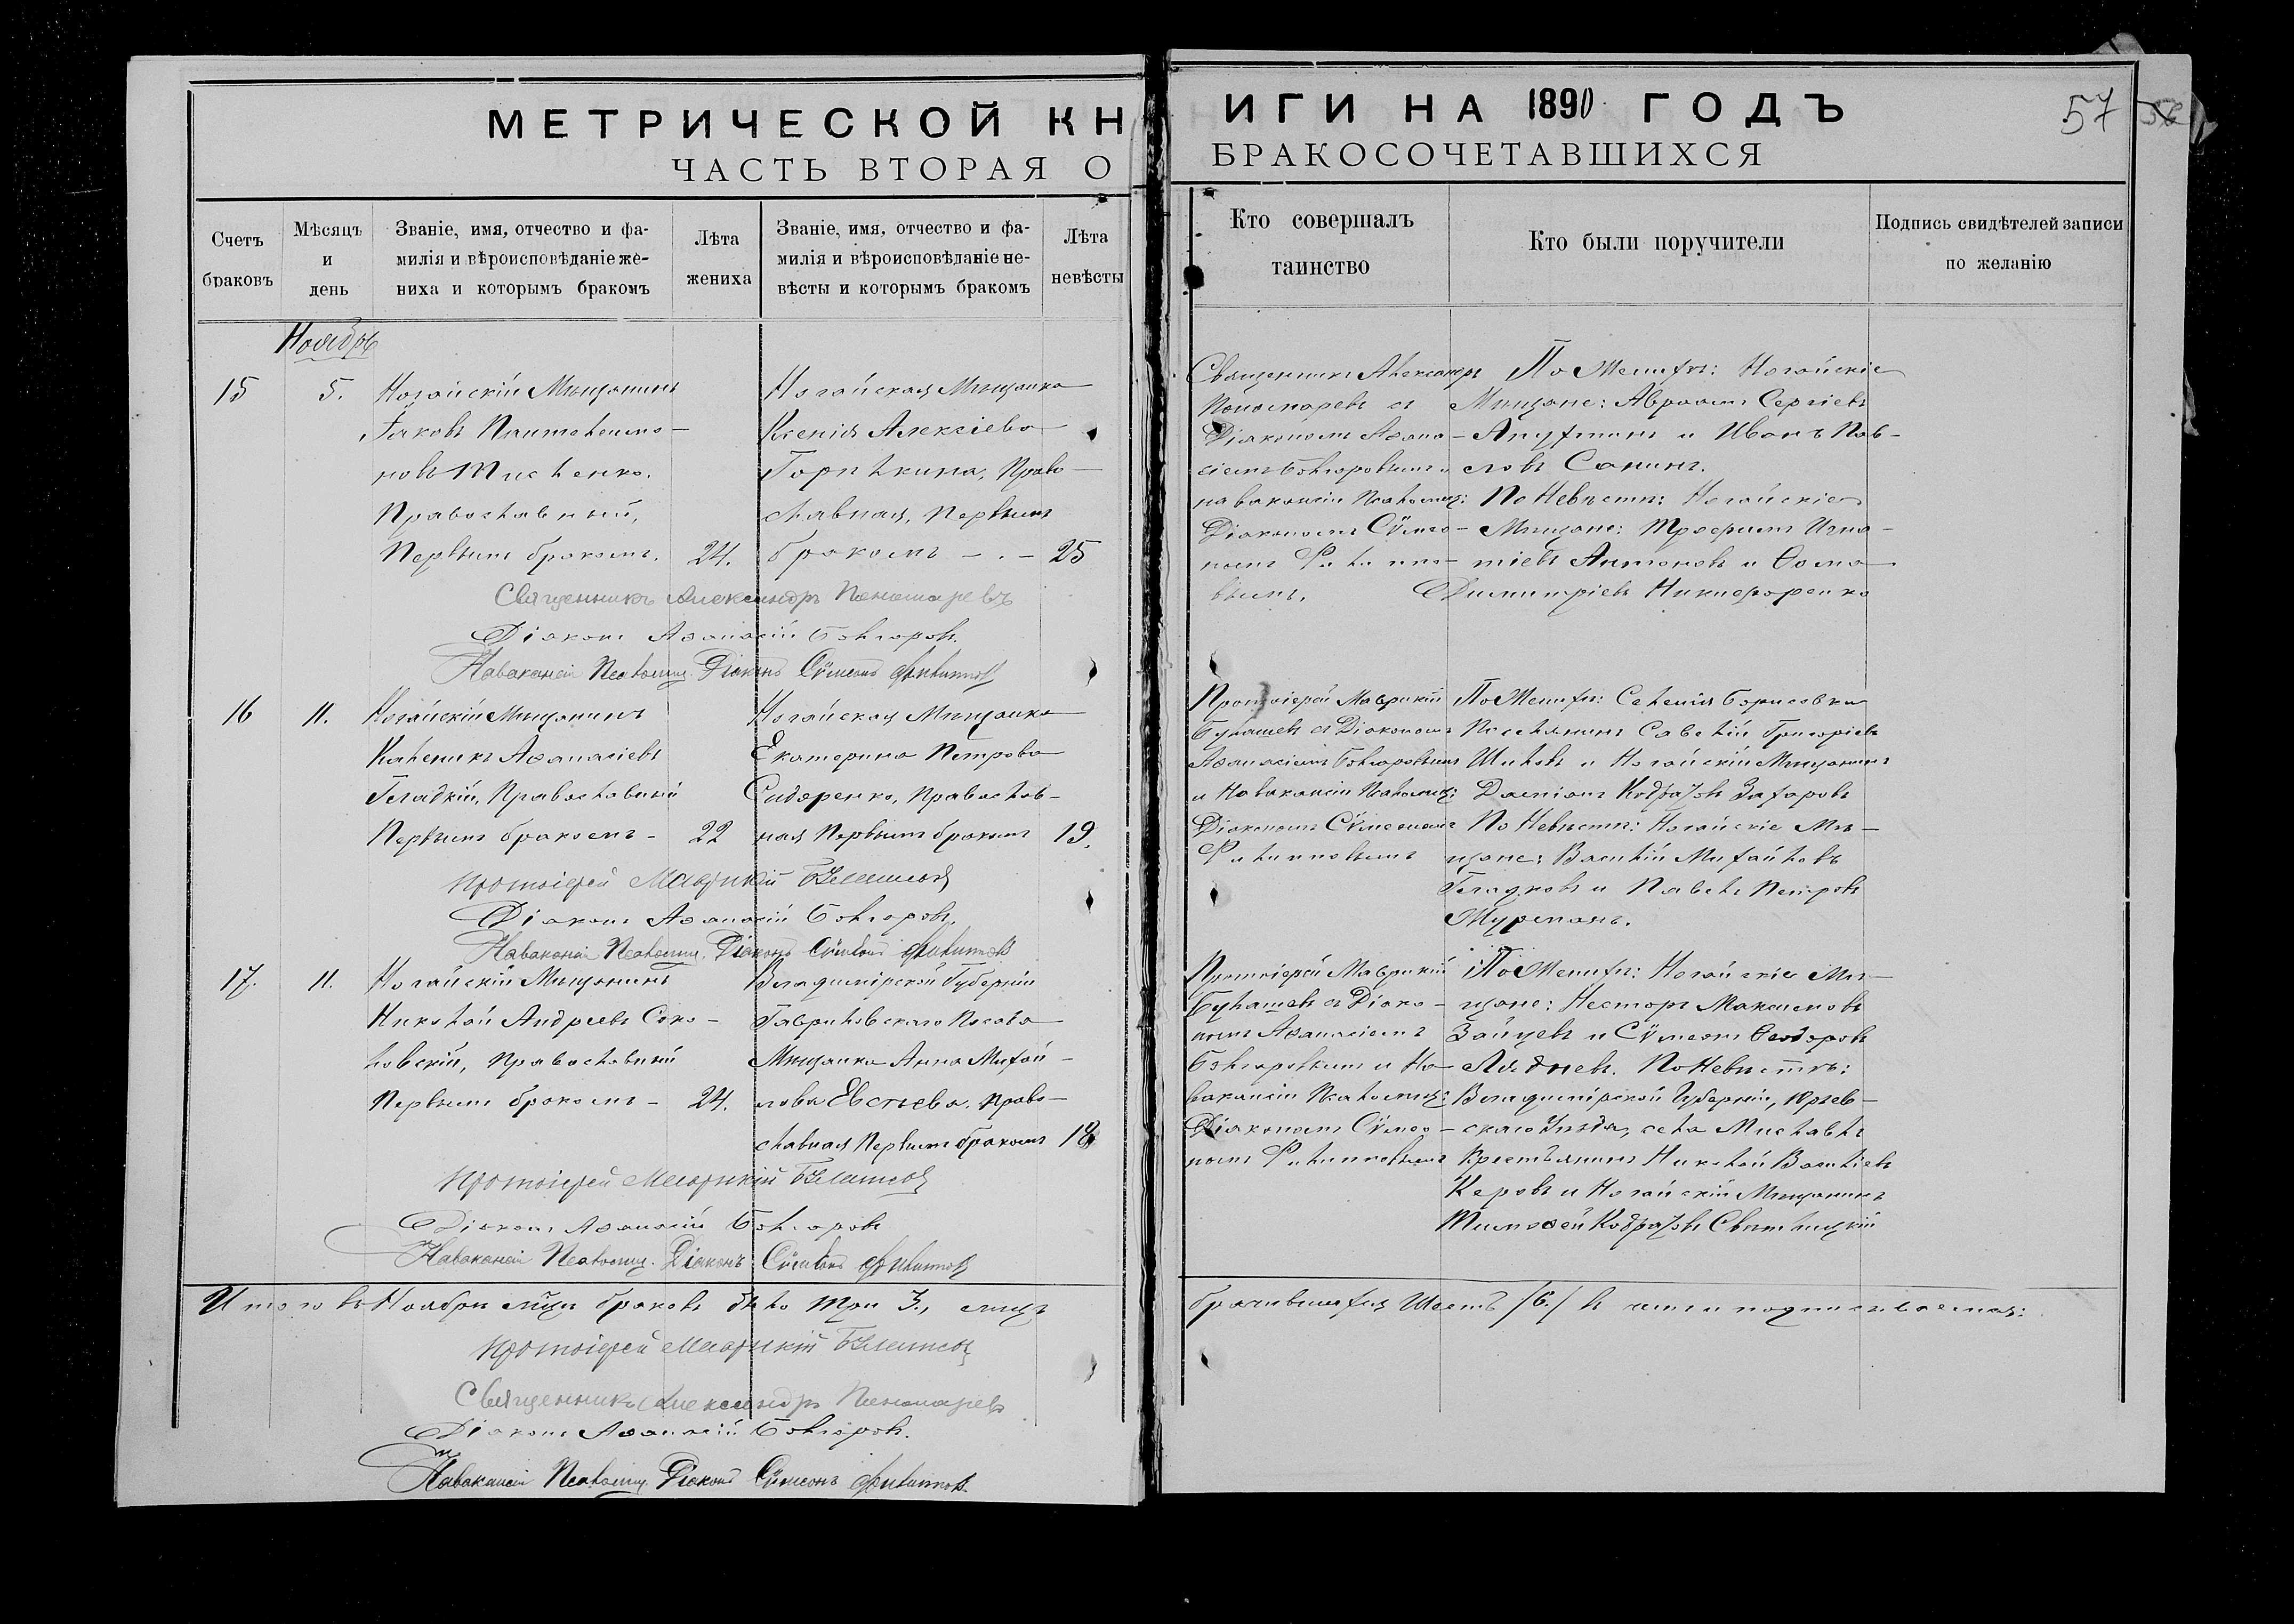 МЕТРИЧЕСКОЙ КНИГИ НА 1890 ГОДЪ
57
ЧАСТЬ ВТОРАЯ О БРАКОСОЧЕТАВШИХСЯ
Счетъ браковъ
Мѣсяцъ и день
Званіе, имя, отчество и фа-
милія и вѣроисповѣданіе же-
ниха и которымъ бракомъ
Лѣта жениха
Званіе, имя, отчество и фа-
милія и вѣроисповѣданіе не-
вѣсты и которымъ бракомъ
Лѣта невѣсты
Кто совершалъ
таинство
Кто были поручители
Подпись свидѣтелей записи
по желанію
Ноябрь
15
5.
Ногайскій Мѣщанинъ
Іаковъ Пантелеимо-
новъ Тисленко.
Православный,
Первымъ бракомъ.
24.
Ногайская Мѣщанка
Ксенія Алексіева
Горѣлкина, Право-
славная, Первымъ
бракомъ
25
Священникъ Александръ
Пономаревъ съ
Діакономъ Аѳана-
сіемъ Бѣлгоровымъ и
на вакансіи Псаломщ:
Діакономъ Сѵмео-
номъ Филиппо-
вымъ.
По Женихѣ: Ногайскіе
Мѣщане: Авраамъ Сергіевъ
и Иванъ Пав-
ловъ Санинъ.
По Невѣстѣ: Ногайскіе
Мѣщане: Трофимъ Игна-
тіевъ Антоновъ и Ѳома
Димитріевъ Никифоренко
Священникъ Александръ Пономаревъ
Діаконъ Аѳанасій Бѣлгоровъ.
На вакансіи Псаломщ. Діаконъ Сѵмеонъ Филипповъ
16
11.
Ногайскій Мѣщанинъ
Каленикъ Аѳанасіевъ
Гладкій, Православный
Первымъ бракомъ
22
Ногайская Мѣщанка
Екатерина Петрова
Сидоренко, Православ-
ная Первымъ бракомъ
19.
Протоіерей Маврикій
Булашевъ съ Діакономъ
Аѳанасіемъ Бѣлгоровымъ
и На вакансіи Псаломщ:
Діакономъ Сѵмеономъ
Филипповымъ
По Женихѣ: Селенія Борисовки
Поселянинъ Савелій Григоріевъ
Шиловъ и Ногайскій Мѣщанинъ
Даміанъ Захаровъ
По Невѣстѣ: Ногайскіе Мѣ-
щане: Василій Михайловъ
Гладковъ и Павелъ Петровъ
Протоіерей Маврикій Булашевъ
Діаконъ Аѳанасій Бѣлгоровъ
На вакансіи Псаломщ. Діаконъ Сѵмеонъ Филипповъ
17.
11.
Ногайскій Мѣщанинъ
Николай Андреевъ Соко-
ловскій, Православный
Первымъ бракомъ
24.
Владимірской Губерніи
Гавриловскаго Посада
Мѣщанка Анна Михай-
лова Евсѣева. Право-
славная Первымъ бракомъ
18
Протоіерей Маврикій
Булашевъ съ Діако-
номъ Аѳанасіемъ
Бѣлгоровымъ и На
вакансіи Псаломщ:
Діакономъ Сѵмео-
номъ Филипповымъ
По Женихѣ: Ногайскіе Мѣ-
щане: Несторъ Максимовъ
Зайцевъ и Сѵмеонъ Ѳеодоровъ
Лядневъ. По Невѣстѣ:
Владимірской Губерніи, Юрьев-
скаго Уѣзда, села
Крестьянинъ Николай Васильевъ
Керовъ и Ногайскій Мѣщанинъ
Тимоѳей Свѣтлицкій
Протоіерей Маврикій Булашевъ
Діаконъ Аѳанасій Бѣлгоровъ
На вакансіи Псаломщ. Діаконъ Сѵмеонъ Филипповъ
Итого въ Ноябрѣ м҃цѣ браковъ было три 3., лицъ бракившихся Шесть /6./ въ чемъ и подписываемся:
Протоіерей Маврикій Булашевъ
Священникъ Александръ Пономаревъ
Діаконъ Аѳанасій Бѣлгоровъ.
На вакансіи Псаломщ. Діаконъ Сѵмеонъ Филипповъ.